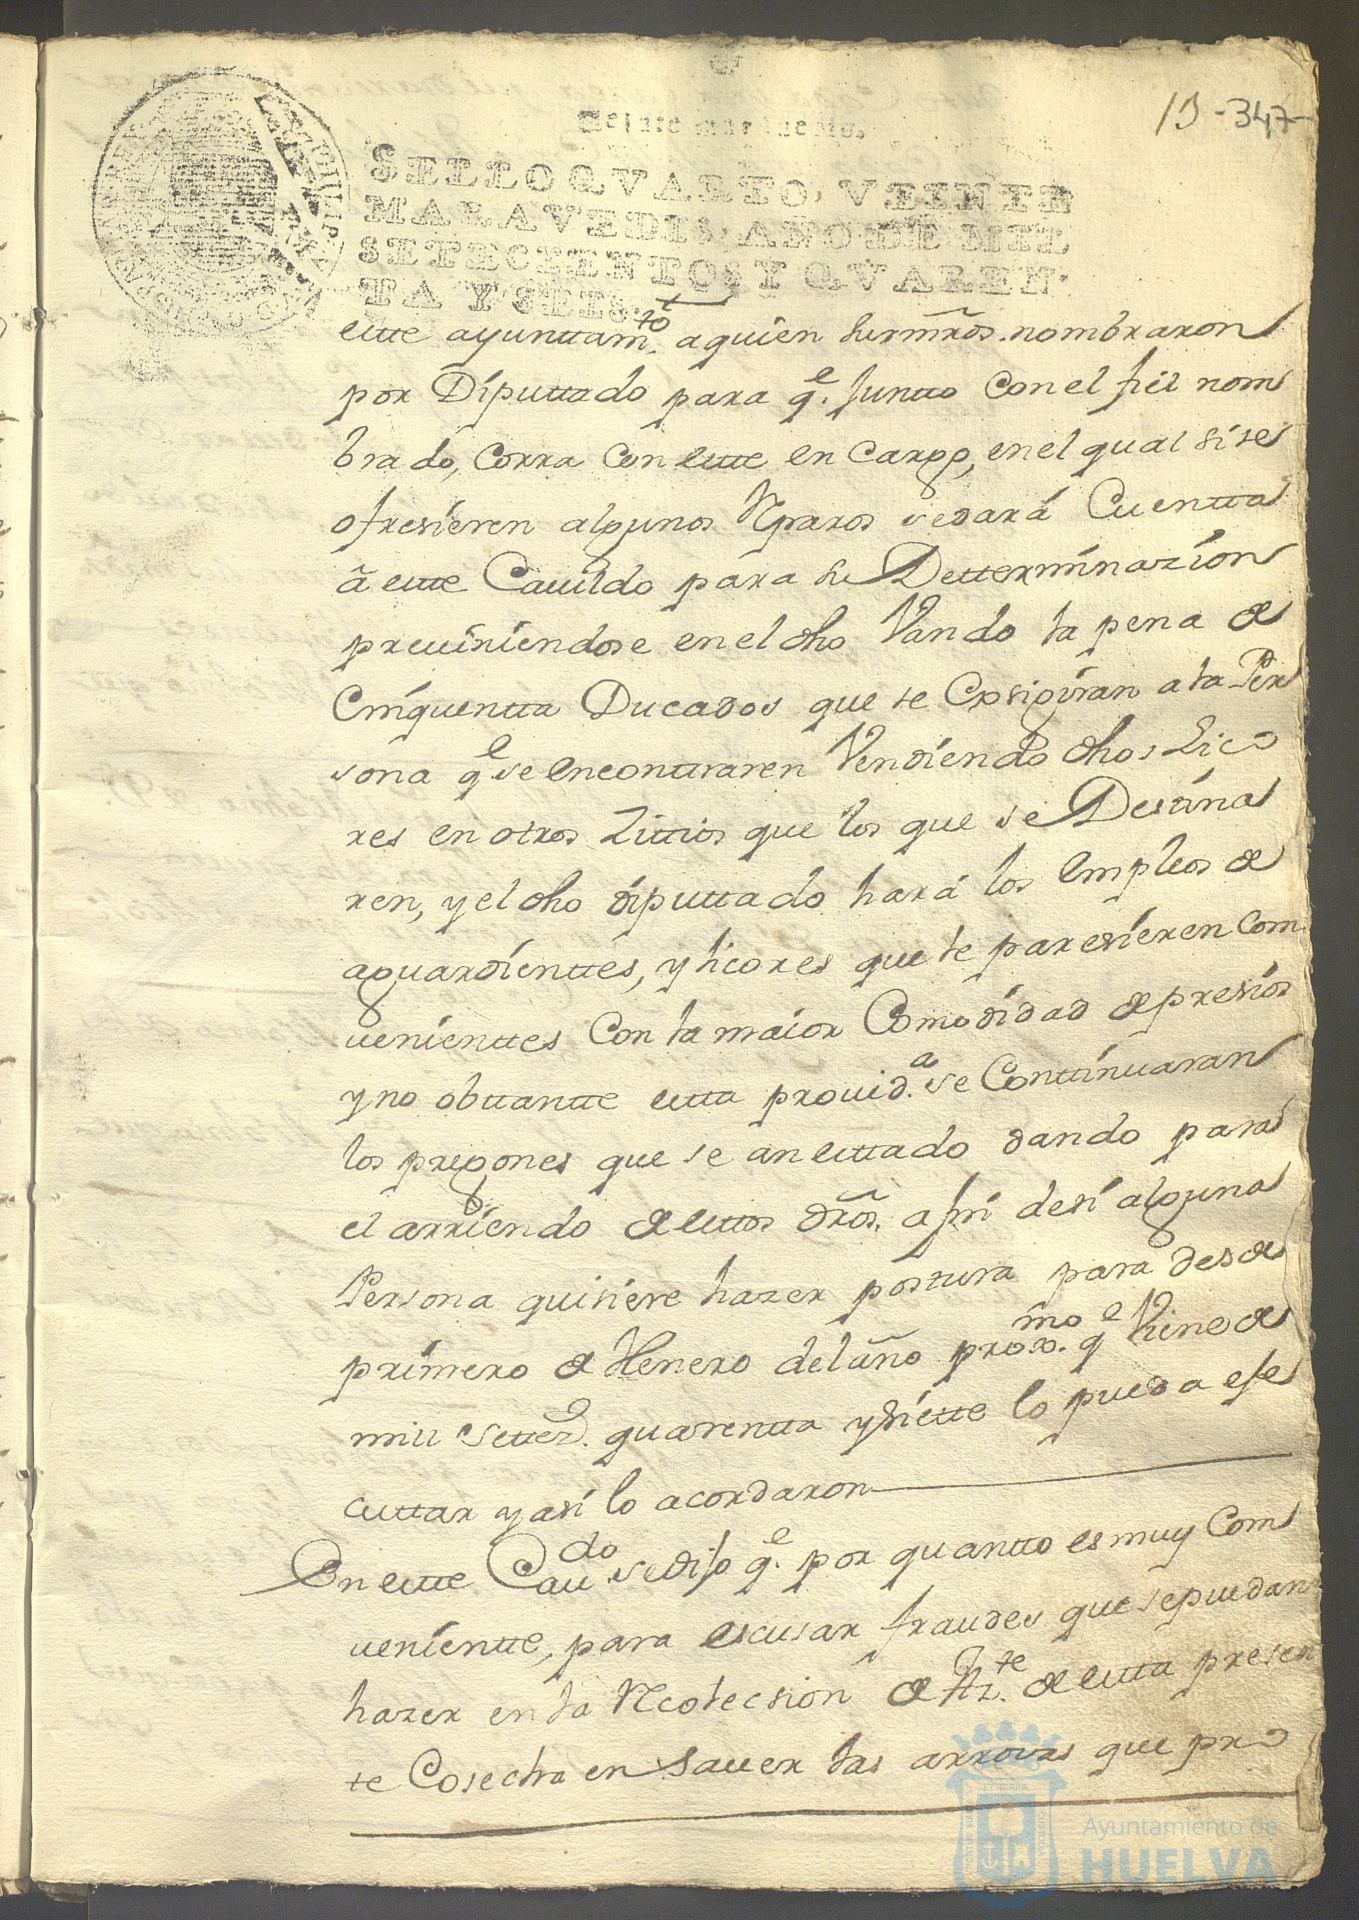 13 -347-
Veinte maravedis.
SELLO QVARTO, VEINTE
MARAVEDIS, AÑO DE MIL
SETECIENTOS Y QVAREN-
TA Y SEIS.
este ayunttam.to a quien su mrõs. nombraron
por Diputtado para q.e Juntto con el fiel nom
brado, Corra con este en cargo, en el qual si se
ofresieren algunos Rparos se dará Cuentta
â este Cauildo para su Dettermínazíon
preuiniendose en el dho Vando la pena de
Cinquentta Ducados que se Exsigíran a la Per
sona q.e se encontraren Vendiendo dhos Lico
res en otros Sittios que los que se Destína
ren, y el dho diputtado hará los empleos de
aguardienttes, y licores que le paresíeren com
uenienttes Con la maior Comodidad de presios
y no obstantte esta prouid.a se Conttinuaran
los pregones que se an estado dando para
el arriendo de estos drõs. a fin de si alguna
Persona quisiere hazer postura para desde
primero de Henero del año prox.mo q.e Viene de
mill Settez.s quarentta y siette lo pueda eje
cuttar y asi lo acordaron
En este Cau.do se dijo q.e por quantto es muy Com
ueniente, para escusar fraudes que se puedan
hazer en la Rcolecsion de Az.te de esta presen
te Cosecha en sauer las arrovas que pro
Ayuntamiento de
HUELVA